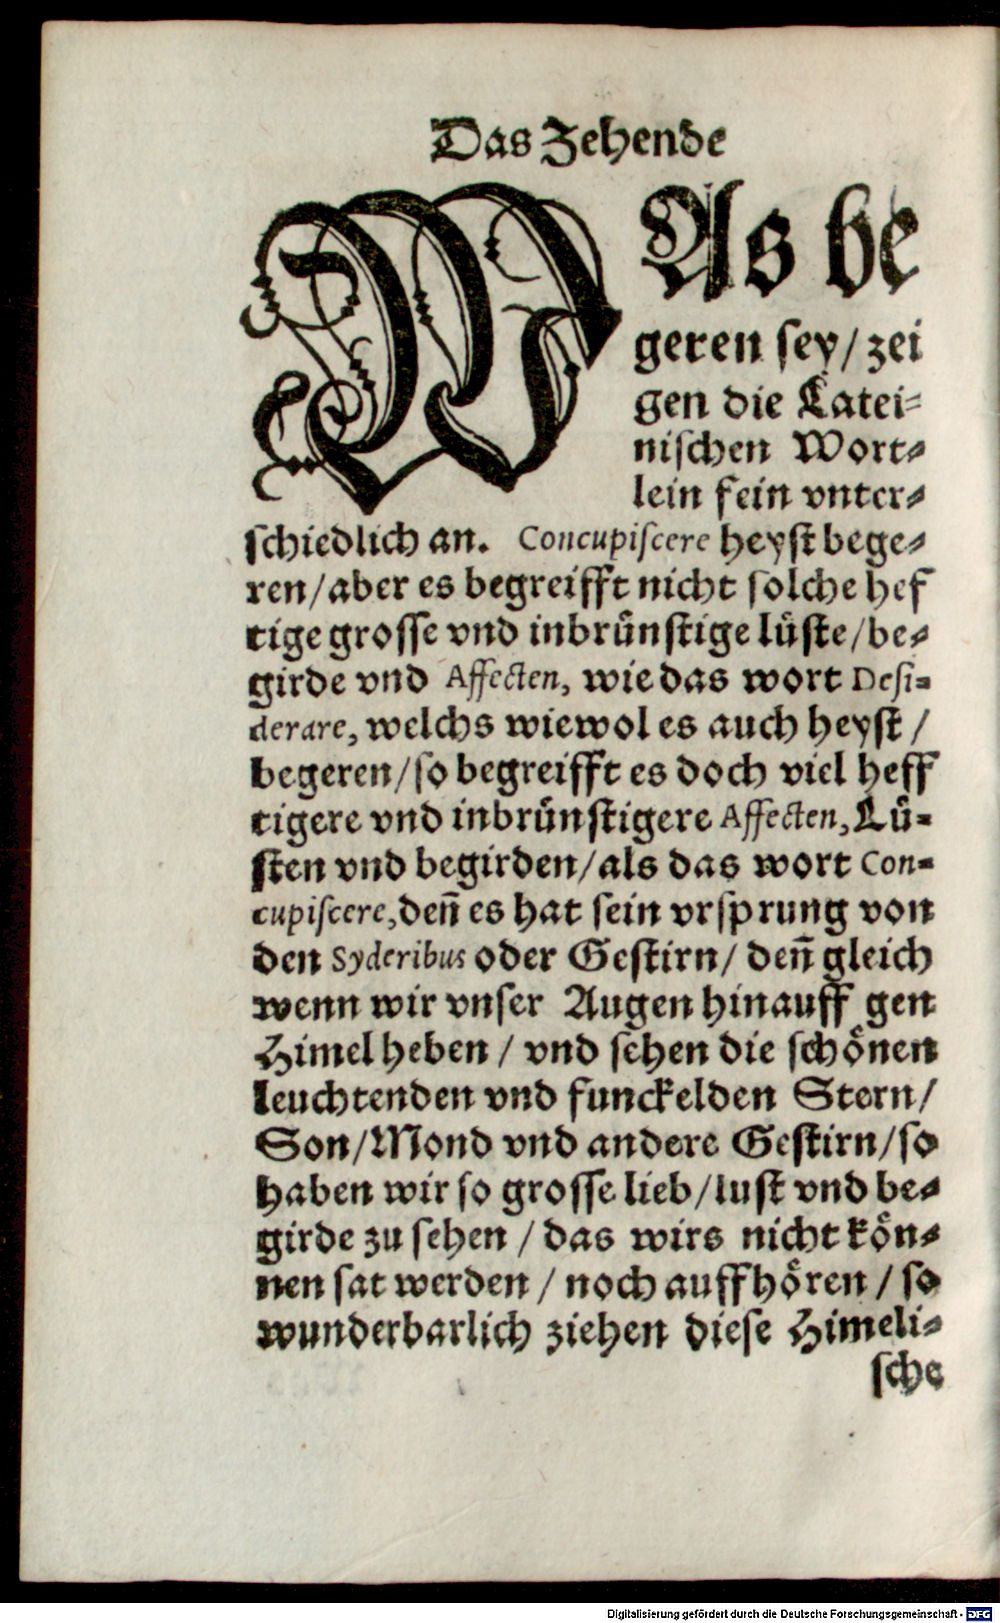 Das Zehende
WAs be
geren sey/ zei
gen die Latei⸗
nischen Wort⸗
lein fein vnter⸗
schiedlich an. Concupiscere heyst bege⸗
ren/ aber es begreifft nicht solche hef
tige grosse vnd inbrünstige lüste/ be⸗
girde vnd Affecten, wie das wort Desi⸗
derare, welchs wiewol es auch heyst /
begeren/ so begreifft es doch viel heff
tigere vnd inbrünstigere Affecten, Lü⸗
sten vnd begirden/ als das wort Con⸗
cupiscere, den̄ es hat sein vrsprung von
den Syderibus oder Gestirn/ den̄ gleich
wenn wir vnser Augen hinauff gen
Himel heben / vnd sehen die schönen
leuchtenden vnd funckelden Stern/
Son/ Mond vnd andere Gestirn/ so
haben wir so grosse lieb/ lust vnd be⸗
girde zu sehen / das wirs nicht kön⸗
nen sat werden / noch auffhören / so
wunderbarlich ziehen diese Himeli⸗
sche
Digitalisierung gefördert durch die Deutsche Forschungsgemeinschaft - DFG